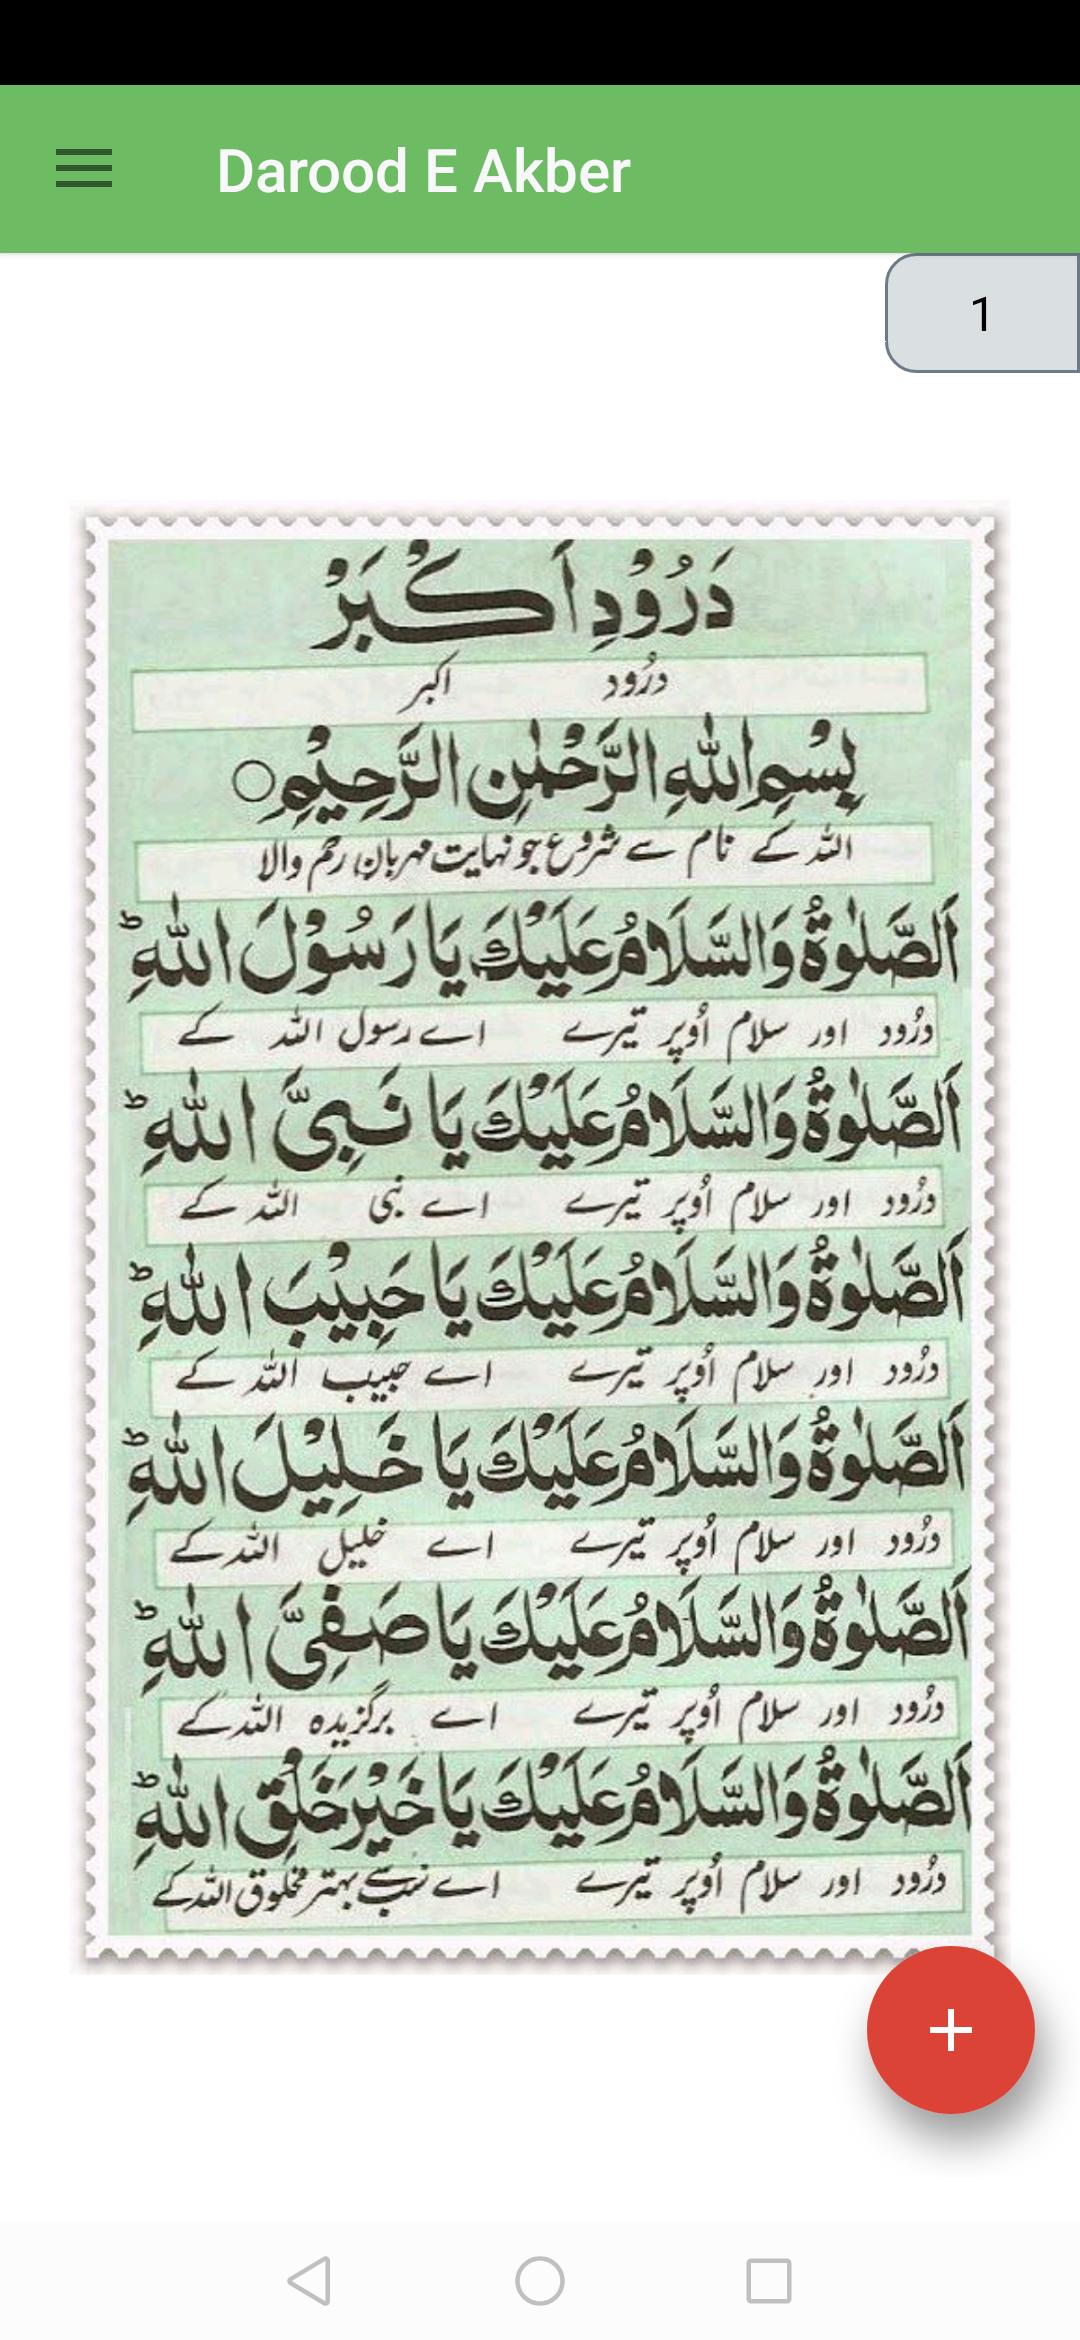 Darood E Akber
1
دَرُوْدِ اَكْبَرْ
درُود اکبر
بِسْمِ اللهِ الرَّحْمٰنِ الرَّحِيْمِ○
اللہ کے نام سے شروع جو نہایت مہربان رحم والا
اَلصَّلٰوةُ وَالسَّلَامُ عَلَيْكَ يَا رَسُوْلَ اللهِ ؕ
درُود اور سلام اُوپر تیرے اے رسول اللہ کے
اَلصَّلٰوةُ وَالسَّلَامُ عَلَيْكَ يَا نَبِىَّ اللهِ ؕ
درُود اور سلام اُوپر تیرے اے نبی اللہ کے
اَلصَّلٰوةُ وَالسَّلَامُ عَلَيْكَ يَا حَبِيْبَ اللهِ ؕ
درُود اور سلام اُوپر تیرے اے حبیب اللہ کے
اَلصَّلٰوةُ وَالسَّلَامُ عَلَيْكَ يَا خَلِيْلَ اللهِ ؕ
درُود اور سلام اُوپر تیرے اے خلیل اللہ کے
اَلصَّلٰوةُ وَالسَّلَامُ عَلَيْكَ يَا صَفِىَّ اللهِ ؕ
درُود اور سلام اُوپر تیرے اے برگزیدہ اللہ کے
اَلصَّلٰوةُ وَالسَّلَامُ عَلَيْكَ يَا خَيْرَ خَلْقِ اللهِ ؕ
درُود اور سلام اُوپر تیرے اے سب سے بہتر مخلوق اللہ کے